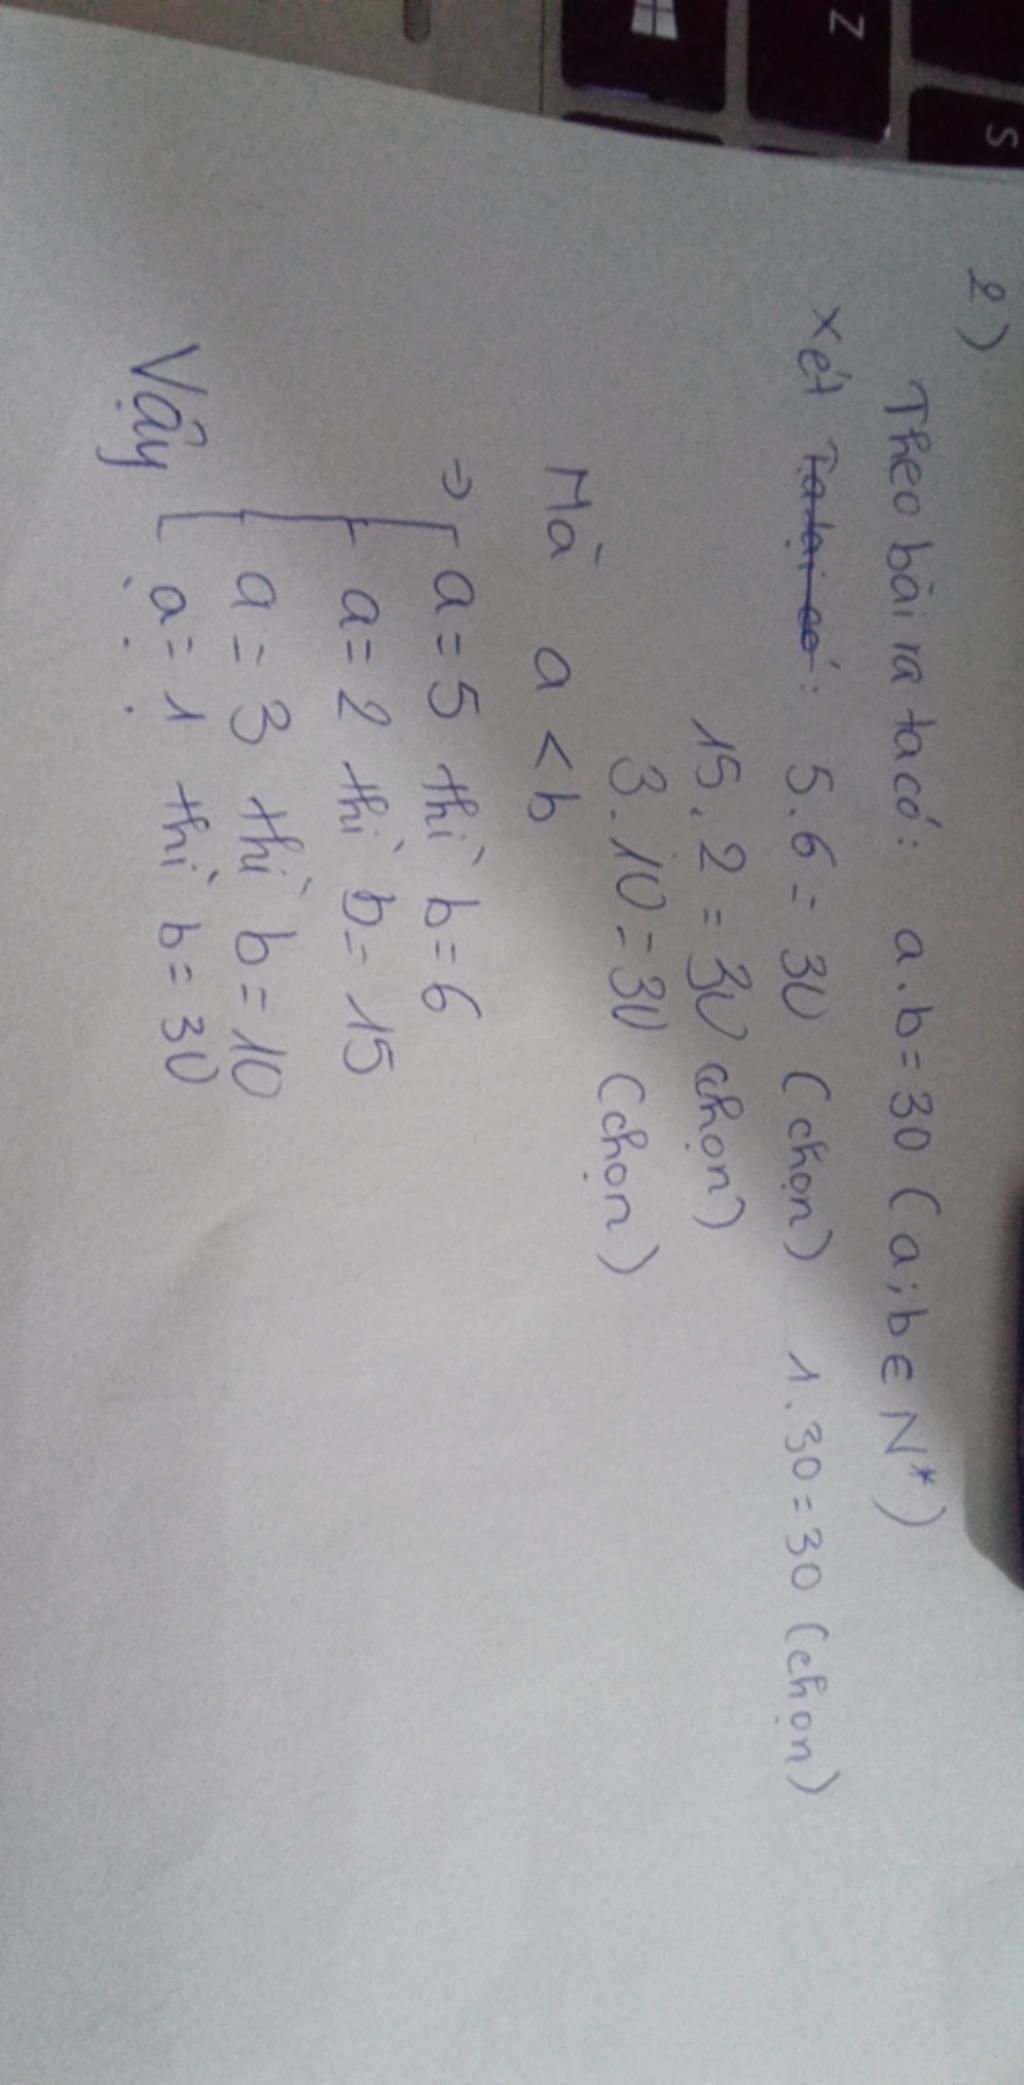 2)
Theo bài ra ta có: a.b = 30 (a; b ∈ N*)
Xét Ta lại có: 5.6 = 30 (chọn) 1.30 = 30 (chọn)
15.2 = 30 chọn)
3.10 = 30 (chọn)
Mà a < b
=> [ a = 5 thì b = 6
a = 2 thì b = 15
a = 3 thì b = 10
a = 1 thì b = 30
Vậy ...
Z
S